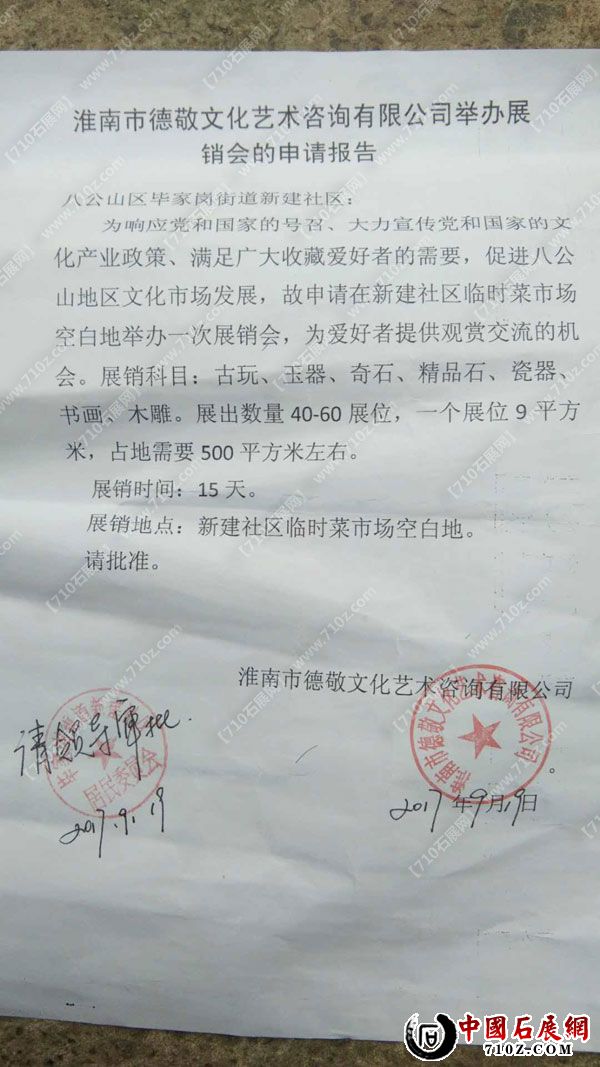 淮南市德敬文化艺术咨询有限公司举办展
销会的申请报告
八公山区毕家岗街道新建社区：
为响应党和国家的号召、大力宣传党和国家的文
化产业政策、满足广大收藏爱好者的需要，促进八公
山地区文化市场发展，故申请在新建社区临时菜市场
空白地举办一次展销会，为爱好者提供观赏交流的机
会。展销科目：古玩、玉器、奇石、精品石、瓷器、
书画、木雕。展出数量 40-60 展位，一个展位 9 平方
米，占地需要 500 平方米左右。
展销时间：15 天。
展销地点：新建社区临时菜市场空白地。
请批准。
淮南市德敬文化艺术咨询有限公司
淮南市德敬文化艺术咨询有限公司
。
2017 年 9 月 19 日
请领导审批.
居民委员会
2017.9.19
【710石展网】
www.710z.com
中國石展網
710Z.COM